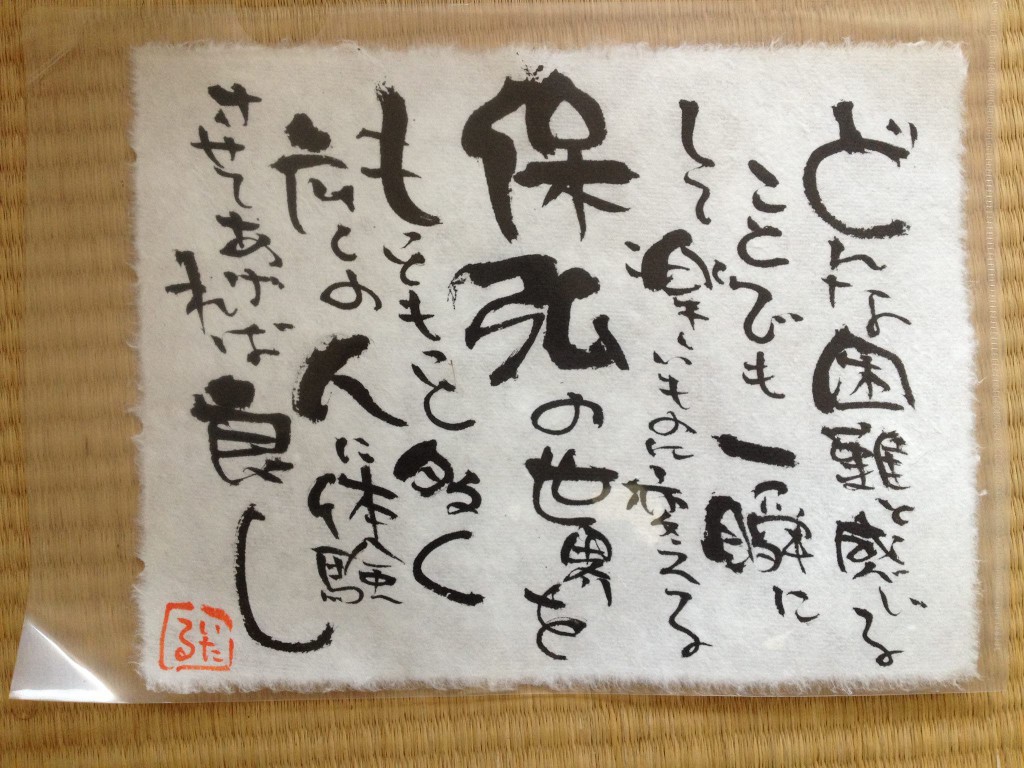 どんな困難と感じる
ことでも一瞬に
して楽いものに変える
保弘の世界を
もっともっと多く
の人に体験
させてあげれば良し
いたる